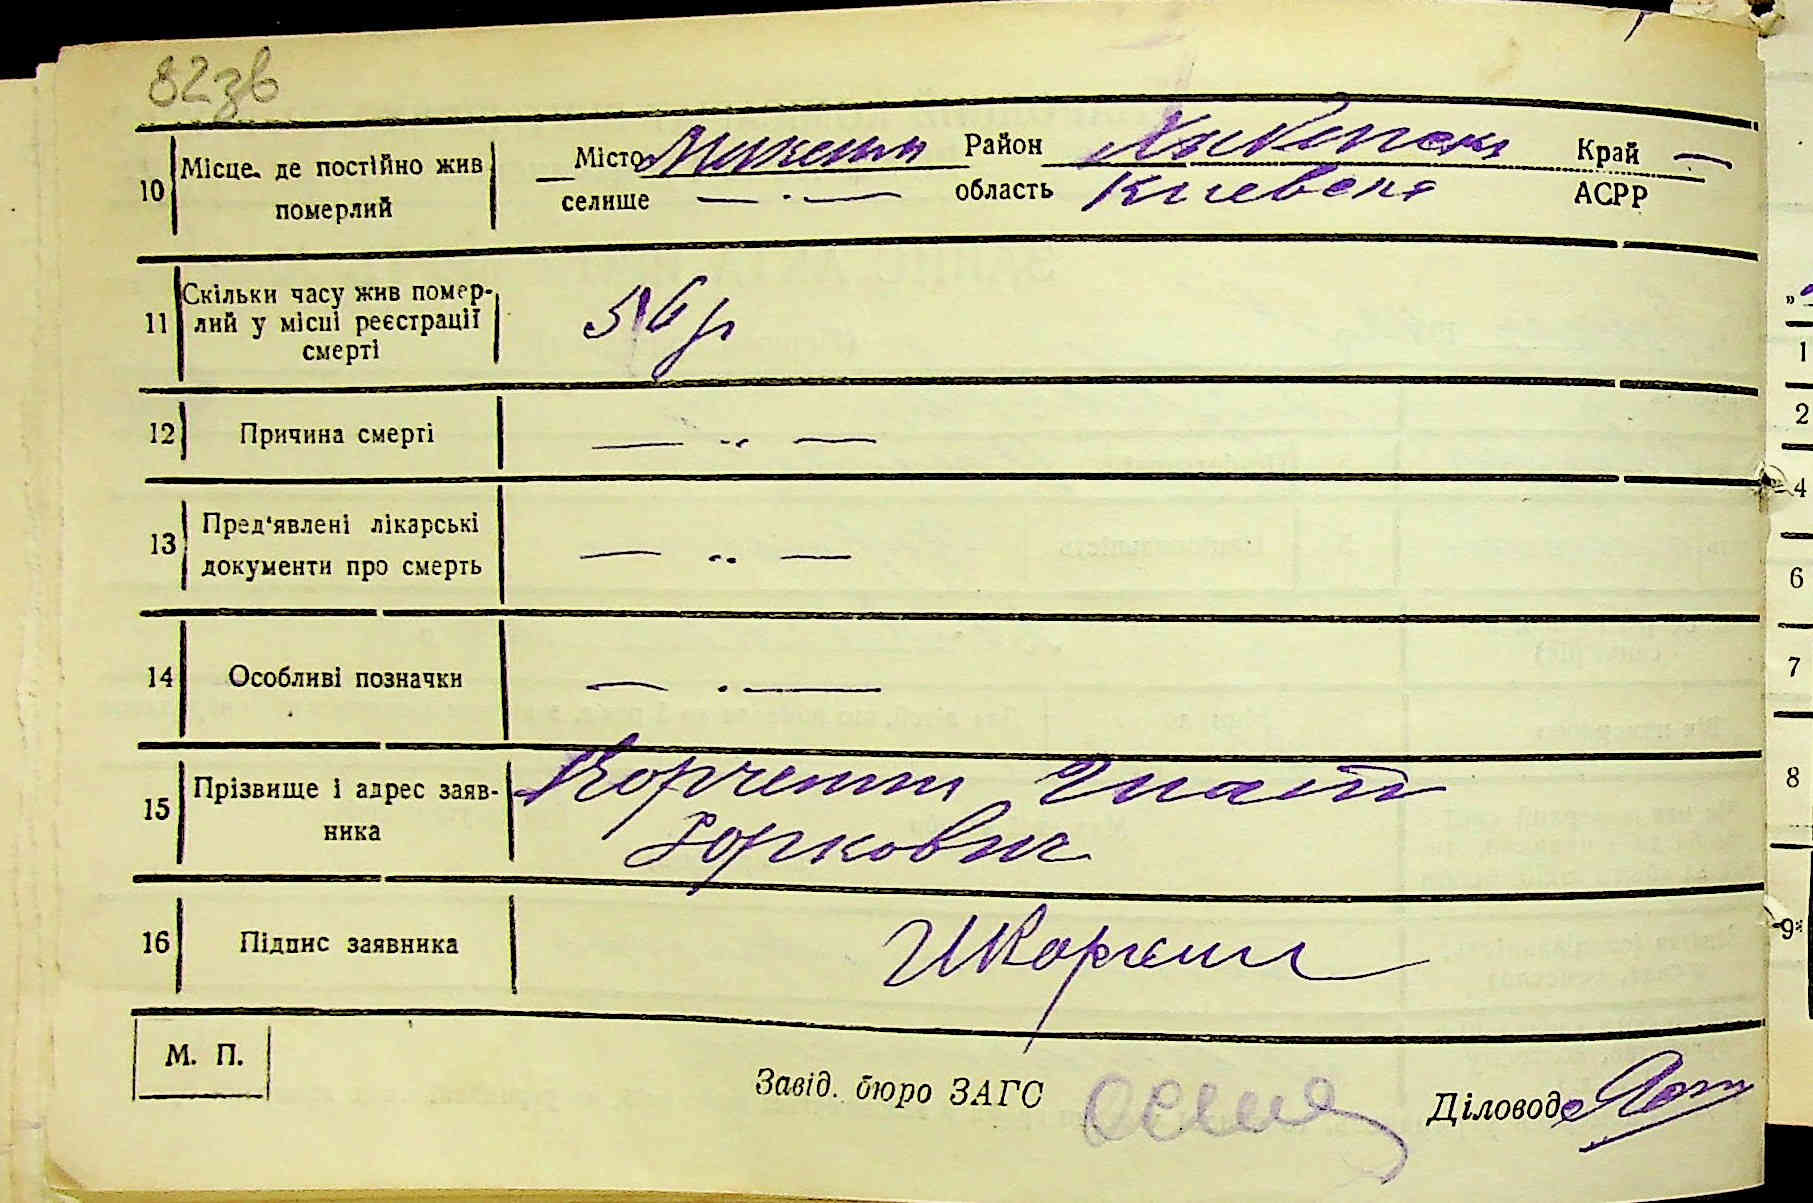 82зв
10 Місце де постійно жив померлий
Місто Район Край —
селище — · — область Киевска АСРР
11 Скільки часу жив помер-
лий у місці реєстрації
смерті
56 р
12 Причина смерті — „ —
13 Пред'явлені лікарські
документи про смерть
— „ —
14 Особливі позначки — · —
15 Прізвище і адрес заяв-
ника
Корченко Гнат
Юркович
16 Підпис заявника
М. П.
Завід. бюро ЗАГС Діловод
1
2
4
6
7
8
9